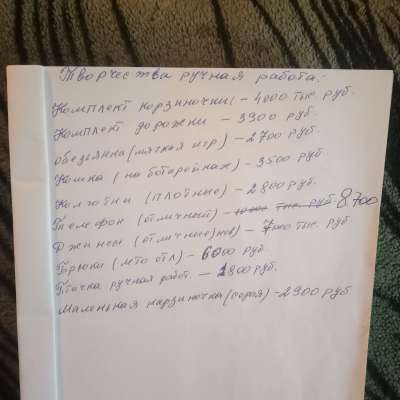 Творчества ручная работа:
Комплект корзиночки - 4000 тыс. руб.
Комплект дорожки - 3900 руб.
обезьянка (мягкая игр) - 2700 руб.
Кошка (на батарейках) - 3500 руб.
Колготки (плотные) - 2800 руб.
Телефон (отличный) - 10000 тыс. руб 8.700
Джинсы (отличные) - 7000 тыс. руб.
Брюки (лето отл) - 6000 руб
Птичка ручная работ. - 1800 руб.
Маленькая карзиночка (серая) - 2900 руб